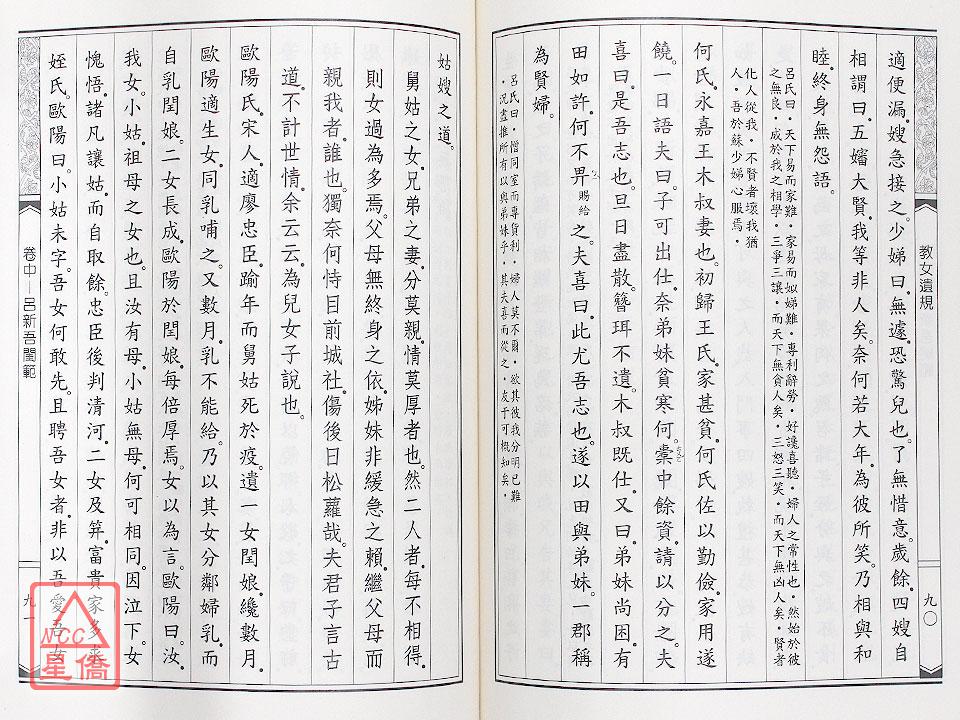 教女遺規
九〇
適便漏。嫂急接之。少娣曰。無遽。恐驚兒也。了無惜意。歲餘。四嫂自
相謂曰。五嬸大賢。我等非人矣。奈何若大年。為彼所笑。乃相與和
睦。終身無怨語。
呂氏曰。天下易而家難。家易而姒娣難。專利辭勞。好讒喜聽。婦人之常性也。然始於彼
之無良。成於我之相學。三爭三讓。而天下無貪人矣。三怒三笑。而天下無凶人矣。賢者
化人從我。不賢者壞我猶
人。吾於蘇少娣心服焉。
何氏。永嘉王木叔妻也。初歸王氏。家甚貧。何氏佐以勤儉。家用遂
饒。一日語夫曰。子可出仕。奈弟妹貧寒何。橐中餘資。請以分之。夫
喜曰。是吾志也。旦日盡散。簪珥不遺。木叔既仕。又曰。弟妹尚困。有
田如許。何不畀賜給之。夫喜曰。此尤吾志也。遂以田與弟妹。一郡稱
為賢婦。
呂氏曰。僧同室而專貨利。婦人莫不爾。欲其彼我分明已難
。況盡推所有以與弟妹乎。其夫喜而從之。友于可概知矣。
姑嫂之道。
舅姑之女。兄弟之妻。分莫親。情莫厚者也。然二人者。每不相得。
則女過為多焉。父母無終身之依。姊妹非緩急之賴。繼父母而
親我者。誰也。獨奈何恃目前城社。傷後日松蘿哉。夫君子言古
道。不計世情。余云云。為兒女子說也。
歐陽氏。宋人。適廖忠臣。踰年而舅姑死於疫。遺一女閏娘。纔數月。
歐陽適生女。同乳哺之。又數月。乳不能給。乃以其女分鄰婦乳。而
自乳閏娘。二女長成。歐陽於閏娘。每倍厚焉。女以為言。歐陽曰。汝。
我女。小姑。祖母之女也。且汝有母。小姑無母。何可相同。因泣下。女
愧悟。諸凡讓姑。而自取餘。忠臣後判清河。二女及笄。富貴家多求
姪氏。歐陽曰。小姑未字。吾女何敢先。且聘吾女者。非以吾愛吾女
卷中－呂新吾閨範
九一
NCC
星僑